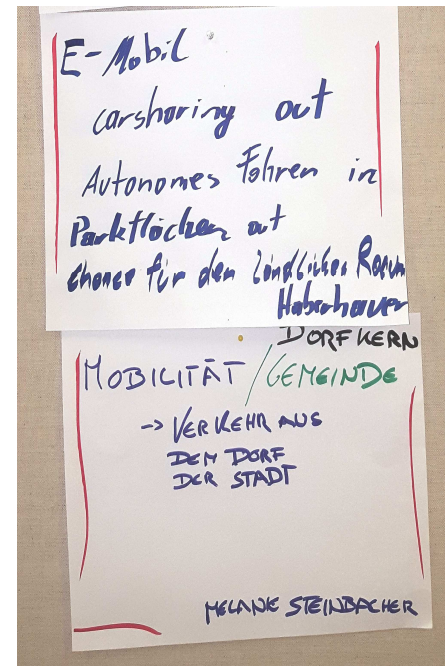 E-Mobil
carsharing out
Autonomes Fahren in
Parkflächen out
Chance für den ländlichen Raum
Haberhauer
DORFKERN
MOBILITÄT / GEMEINDE
-> VERKEHR AUS
DEM DORF
DER STADT
MELANIE STEINBACHER